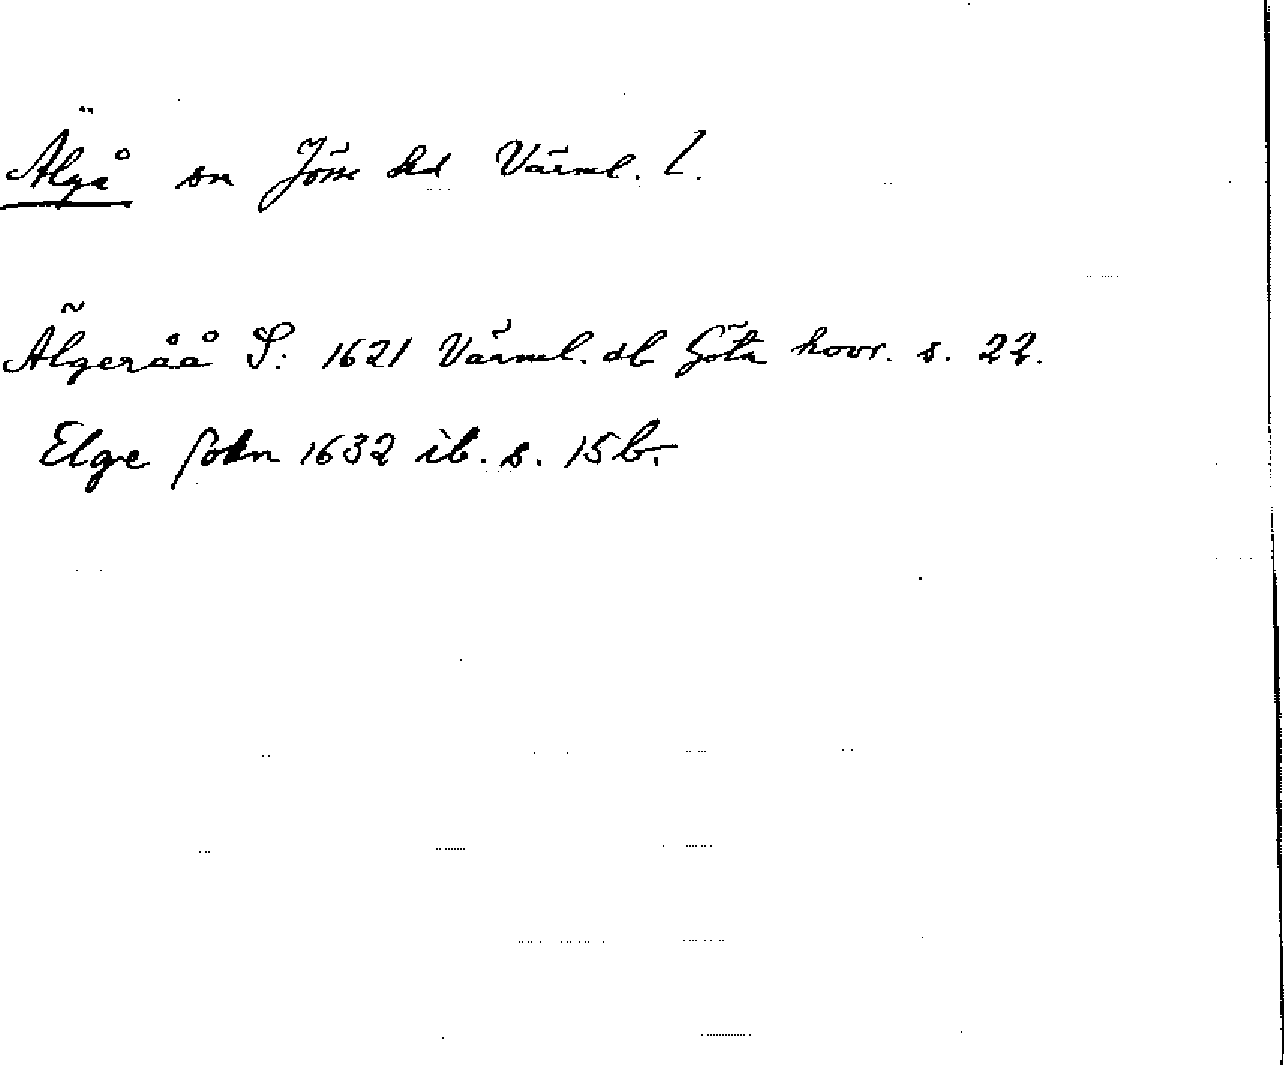 Älgå sn Jösse hd Värml. l.
Älgeråå S: 1621 Värml. db Göta hovr. s. 22.
Elge sokn 1632 ib. s. 15 b.